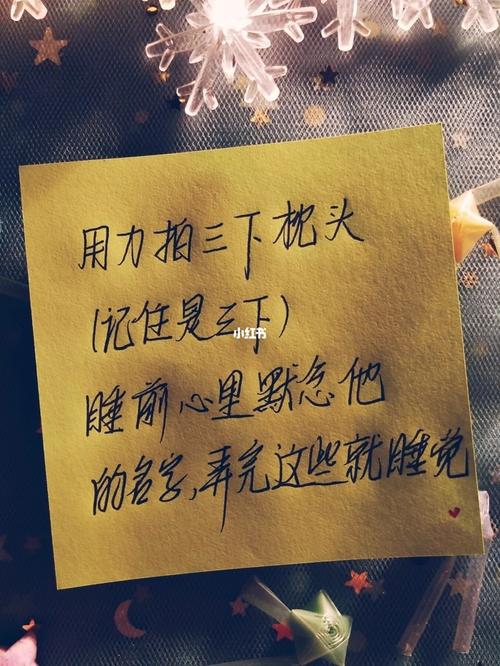 用力拍三下枕头
(记住是三下)
小红书
睡前心里默念他
的名字,弄完这些就睡觉